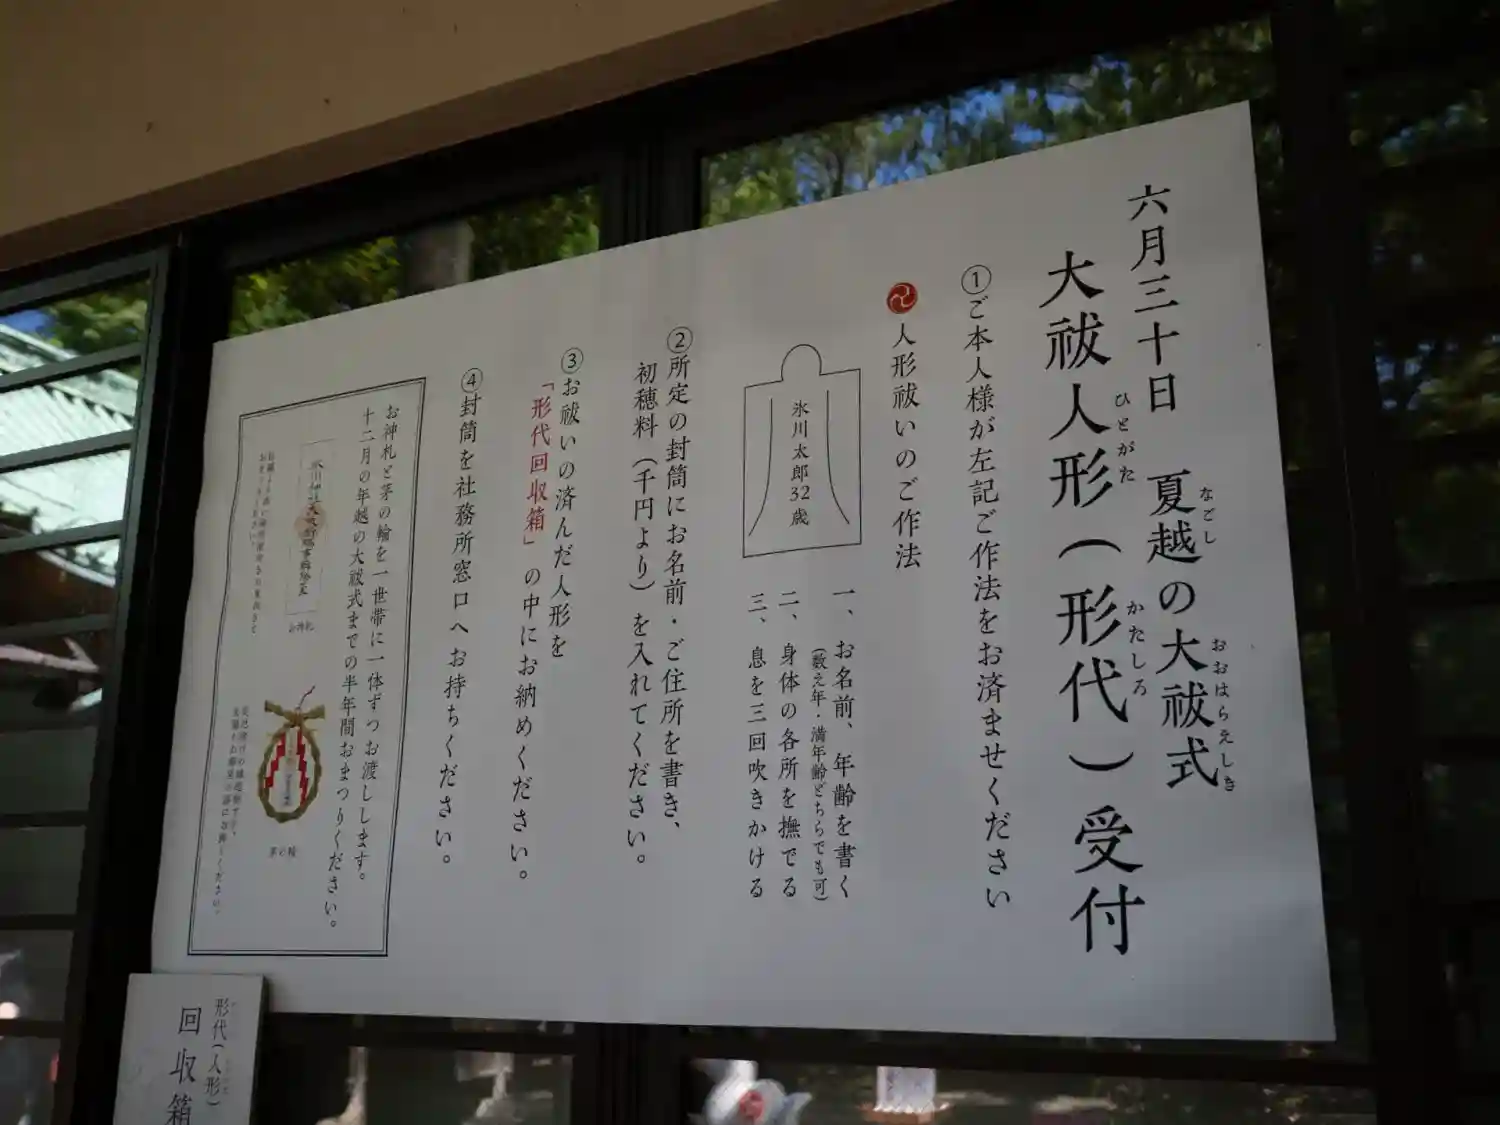 六月三十日　夏越の大祓式
なごし
おおはらえしき
大祓人形（形代）受付
ひとがた
かたしろ
①ご本人様が左記ご作法をお済ませください
人形祓いのご作法
氷川太郎32歳
一、お名前、年齢を書く
（数え年・満年齢どちらでも可）
二、身体の各所を撫でる
三、息を三回吹きかける
②所定の封筒にお名前・ご住所を書き、
初穂料（千円より）を入れてください。
③お祓いの済んだ人形を
「形代回収箱」の中にお納めください。
④封筒を社務所窓口へお持ちください。
お神札と茅の輪を一世帯に一体ずつお渡しします。
十二月の年越の大祓式までの半年間おまつりください。
氷川神社大祓
お神札
茅の輪
形代（人形）
回収箱